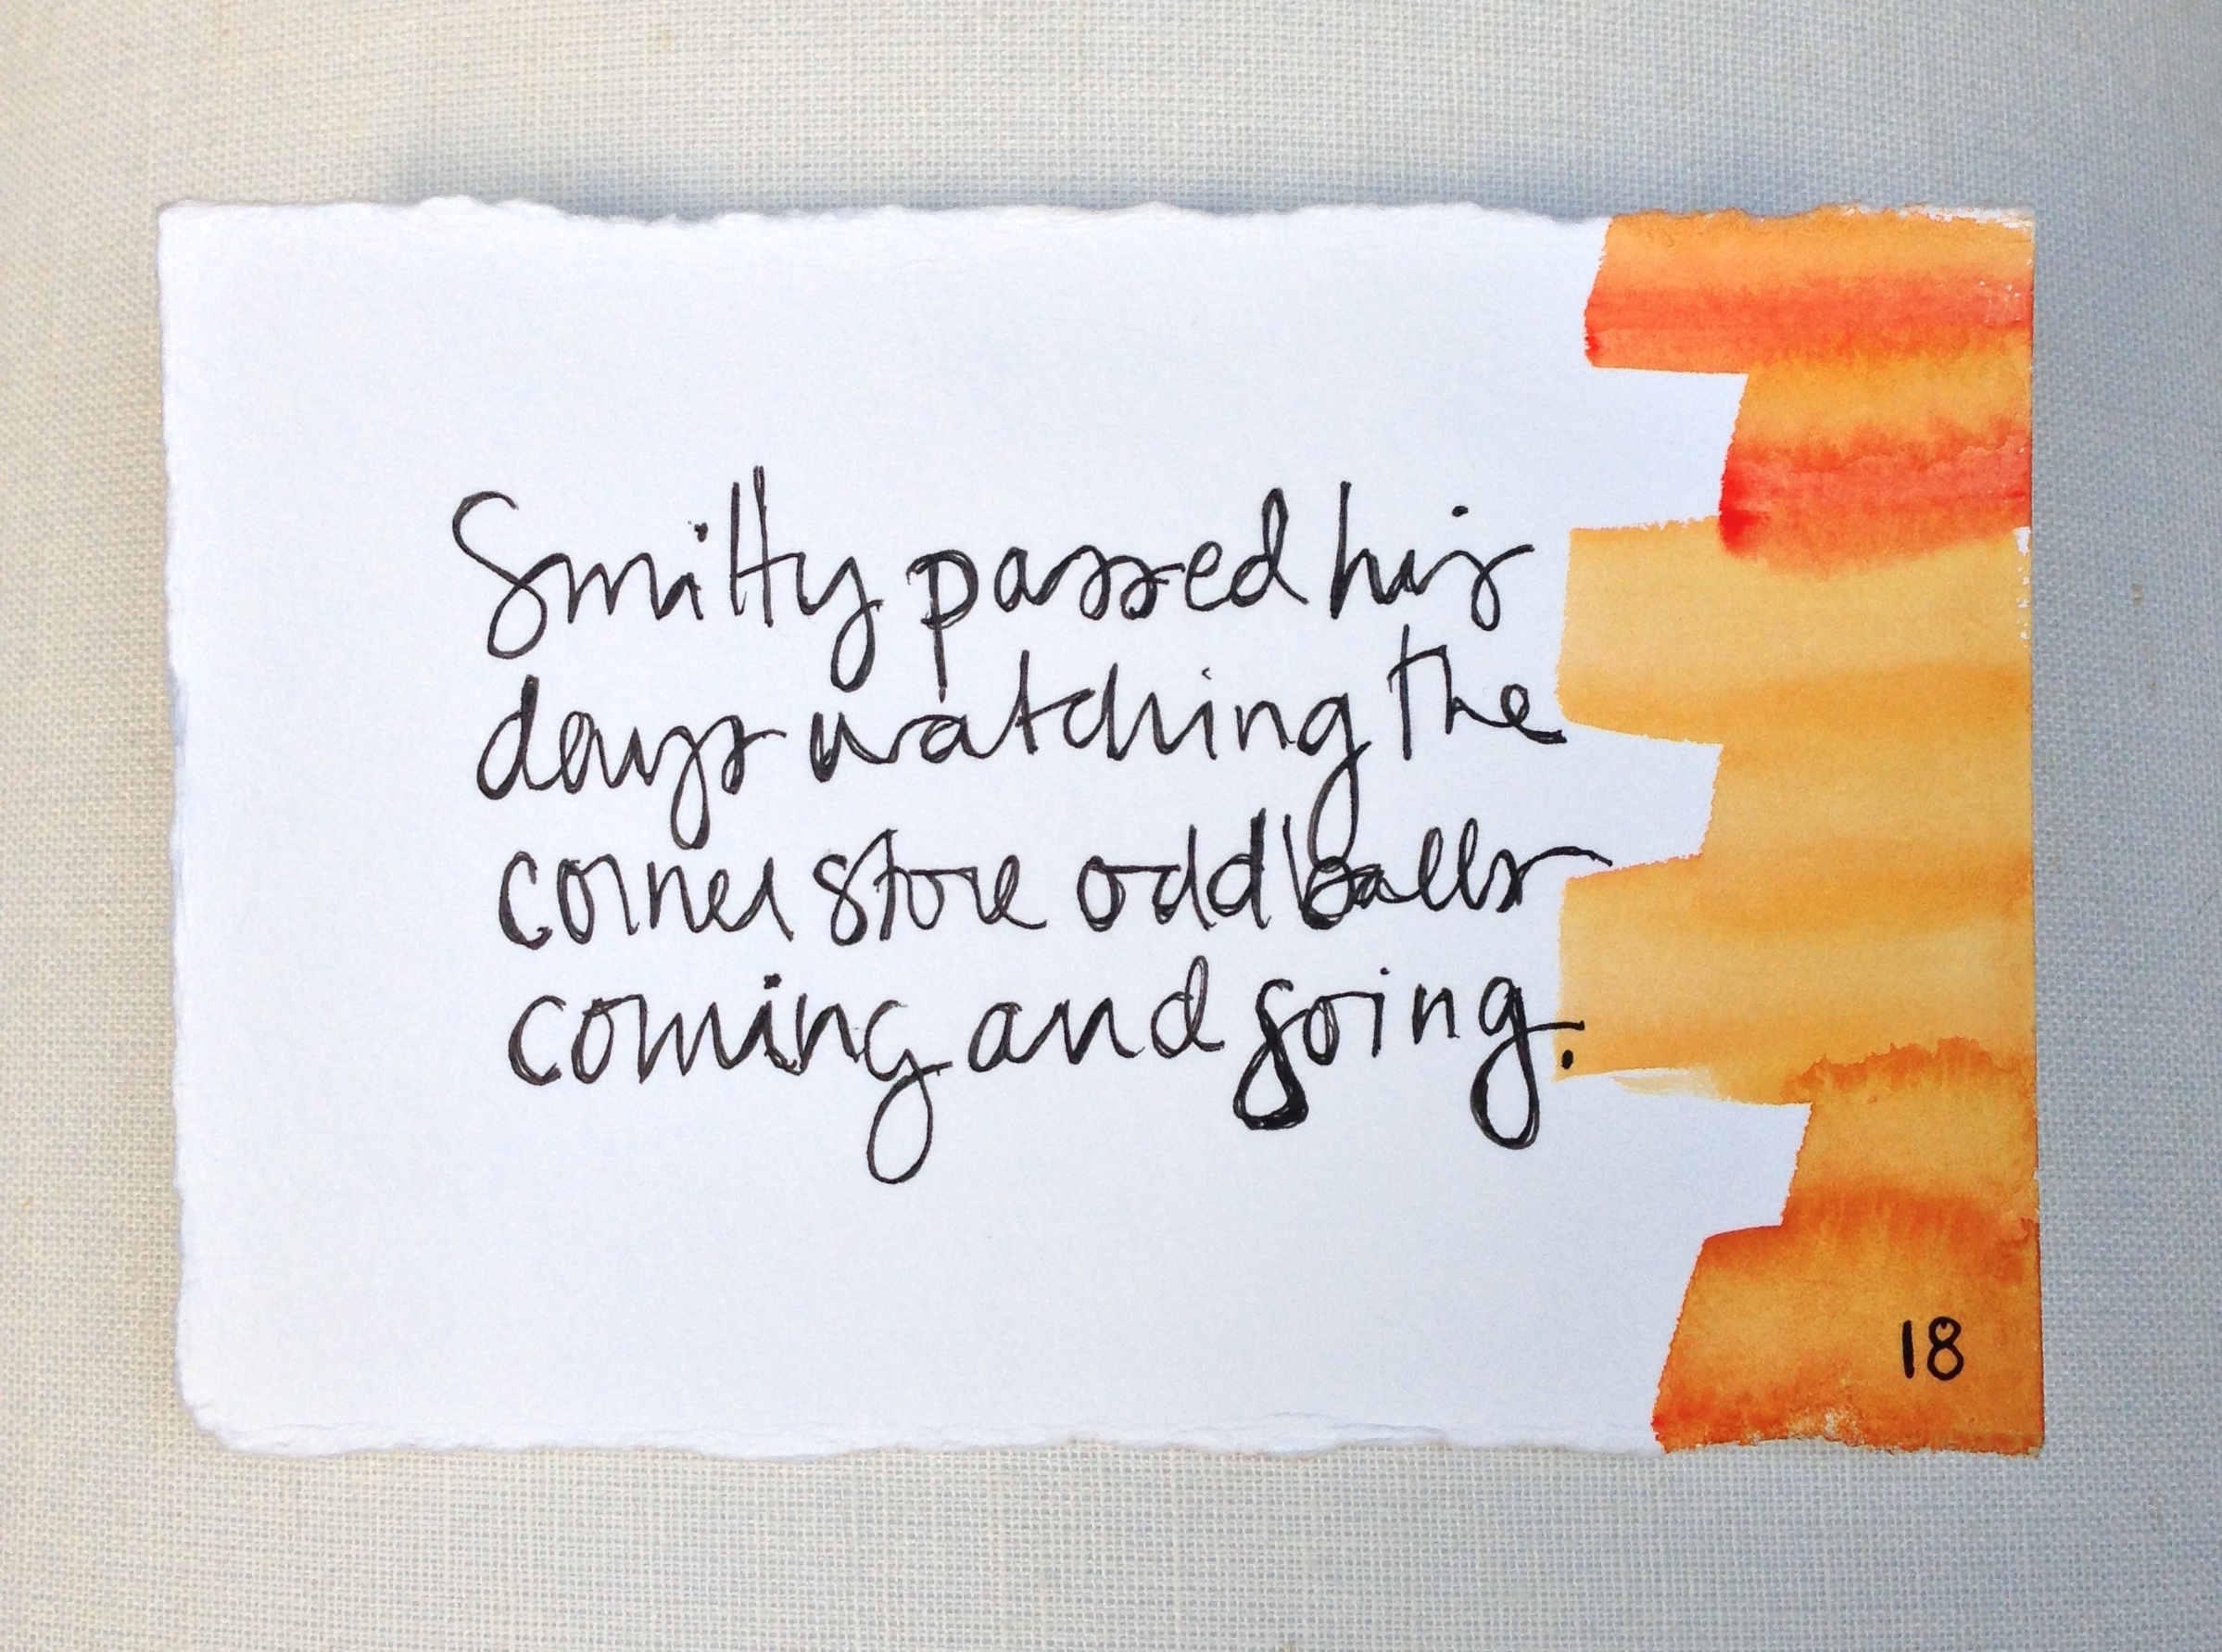 Smitty passed his
days watching the
corner store oddballs
coming and going.
18